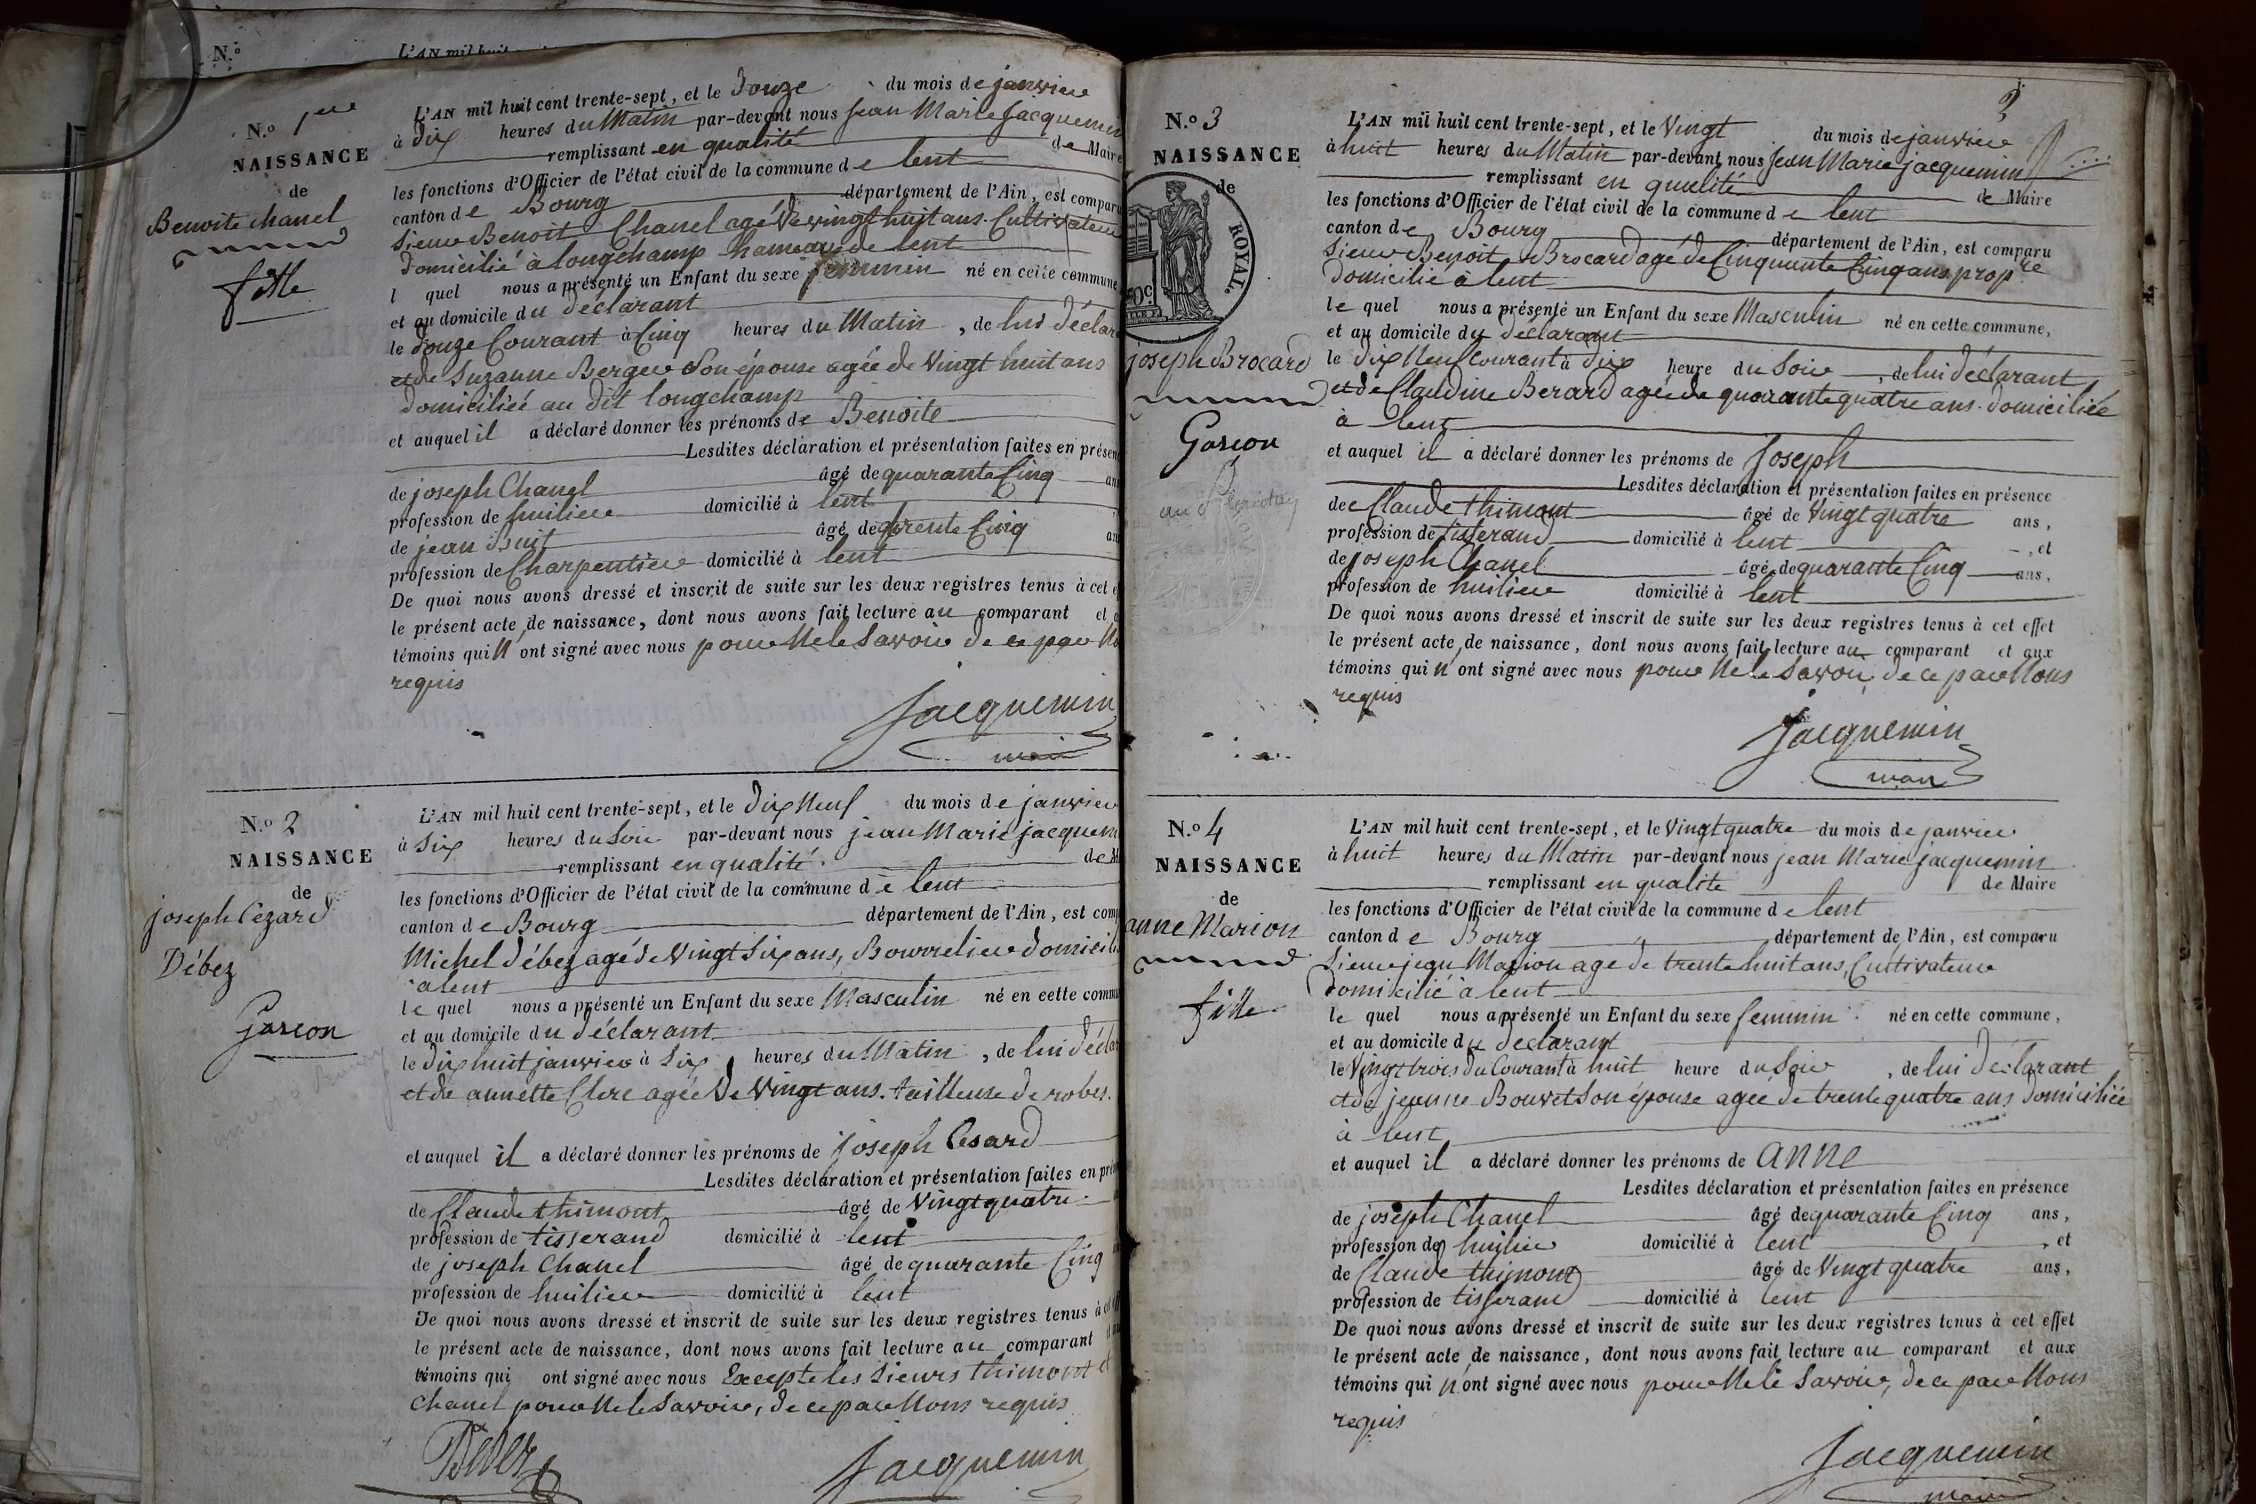 N.º
L'AN mil huit
N.º 1er
NAISSANCE
de
Benoite Chanel
fille
L'AN mil huit cent trente-sept, et le Douze du mois de janvier
à dix heures du Matin par-devant nous Jean Marie Jacquemin
remplissant en qualité de Maire
les fonctions d'Officier de l'état civil de la commune de lent
canton de Bourg département de l'Ain, est comparu
Sieur Benoit Chanel agé de vingt huit ans Cultivateur
domicilié à longchamp hameau de lent
l quel nous a présenté un Enfant du sexe feminin né en cette commune
et au domicile du déclarant
le douze Courant à Cinq heures du Matin, de lui déclar
et de Suzanne Berger Son épouse agée de Vingt huit ans
domiciliée au dit longchamp
et auquel il a déclaré donner les prénoms de Benoite
Lesdites déclaration et présentation faites en présen
de joseph Chanel âgé de quarante Cinq ans
profession de huilier domicilié à lent
de jean âgé de trente Cinq an
profession de Charpentier domicilié à lent
De quoi nous avons dressé et inscrit de suite sur les deux registres tenus à cet e
le présent acte de naissance, dont nous avons fait lecture au comparant et a
témoins qui n'ont signé avec nous pour Ne le Savoir de ce par No
requis
Jacquemin
maire
N.º 2
NAISSANCE
de
joseph Cézard
Débez
Garcon
L'AN mil huit cent trente-sept, et le dix Neuf du mois de janvier
à Six heures du Soir par-devant nous jean Marie jacquem
remplissant en qualité de M
les fonctions d'Officier de l'état civil de la commune de lent
canton de Bourg département de l'Ain, est comp
Michel débez agé de Vingt Six ans, Bourrelier domicili
à lent
le quel nous a présenté un Enfant du sexe Masculin né en cette commu
et au domicile du déclarant
le dix huit janvier à Six heures du Matin, de lui déclar
et de annette Clerc agée de Vingt ans. tailleuse de robes.
et auquel il a déclaré donner les prénoms de joseph Cesard
Lesdites déclaration et présentation faites en pré
de Claude thimont âgé de Vingt quatre
profession de tisserand domicilié à lent
de joseph Chanel âgé de quarante Cinq
profession de huilier domicilié à lent
De quoi nous avons dressé et inscrit de suite sur les deux registres tenus à cet
le présent acte de naissance, dont nous avons fait lecture au comparant
témoins qui ont signé avec nous Excepte les Sieurs thimont et
Chanel pour Ne le Savoir, de ce par Nous requis
Debez
Jacquemin
2
N.º 3
NAISSANCE
de
ROYAL.
joseph Brocard
Garcon
L'AN mil huit cent trente-sept, et le Vingt du mois de janvier
à huit heures du Matin par-devant nous Jean Marie jacquemin
remplissant en qualité de Maire
les fonctions d'Officier de l'état civil de la commune de lent
canton de Bourg département de l'Ain, est comparu
Sieur Benoit Brocard agé de Cinquante Cinq ans propre
domicilié à lent
le quel nous a présenté un Enfant du sexe Masculin né en cette commune,
et au domicile du déclarant
le dix Neuf courant à dix heure du Soir, de lui déclarant
et de Claudine Berard agée de quarante quatre ans. domiciliée
à lent
et auquel il a déclaré donner les prénoms de Joseph
Lesdites déclaration et présentation faites en présence
de Claude thimont âgé de Vingt quatre ans,
profession de tisserand domicilié à lent, et
de joseph Chanel âgé de quarante Cinq ans,
profession de huilier domicilié à lent
De quoi nous avons dressé et inscrit de suite sur les deux registres tenus à cet effet
le présent acte de naissance, dont nous avons fait lecture au comparant et aux
témoins qui n'ont signé avec nous pour Ne le Savoir, de ce par Nous
requis
Jacquemin
maire
N.º 4
NAISSANCE
de
anne Marion
fille
L'AN mil huit cent trente-sept, et le Vingt quatre du mois de janvier
à huit heures du Matin par-devant nous jean Marie jacquemin
remplissant en qualite de Maire
les fonctions d'Officier de l'état civil de la commune de lent
canton de Bourg département de l'Ain, est comparu
Sieur jean Marion age de trente huit ans, Cultivateur
domicilié à lent
le quel nous a présenté un Enfant du sexe feminin né en cette commune,
et au domicile du declarant
le Vingt trois du Courant à huit heure du Soir, de lui déclarant
et de jeanne Bouvet Son épouse agée de trente quatre ans domiciliée
à lent
et auquel il a déclaré donner les prénoms de anne
Lesdites déclaration et présentation faites en présence
de joseph Chanel âgé de quarante Cinq ans,
profession de huilier domicilié à lent, et
de Claude thimont âgé de Vingt quatre ans,
profession de tisserand domicilié à lent
De quoi nous avons dressé et inscrit de suite sur les deux registres tenus à cet effet
le présent acte de naissance, dont nous avons fait lecture au comparant et aux
témoins qui n'ont signé avec nous pour Ne le Savoir, de ce par Nous
requis
Jacquemin
maire